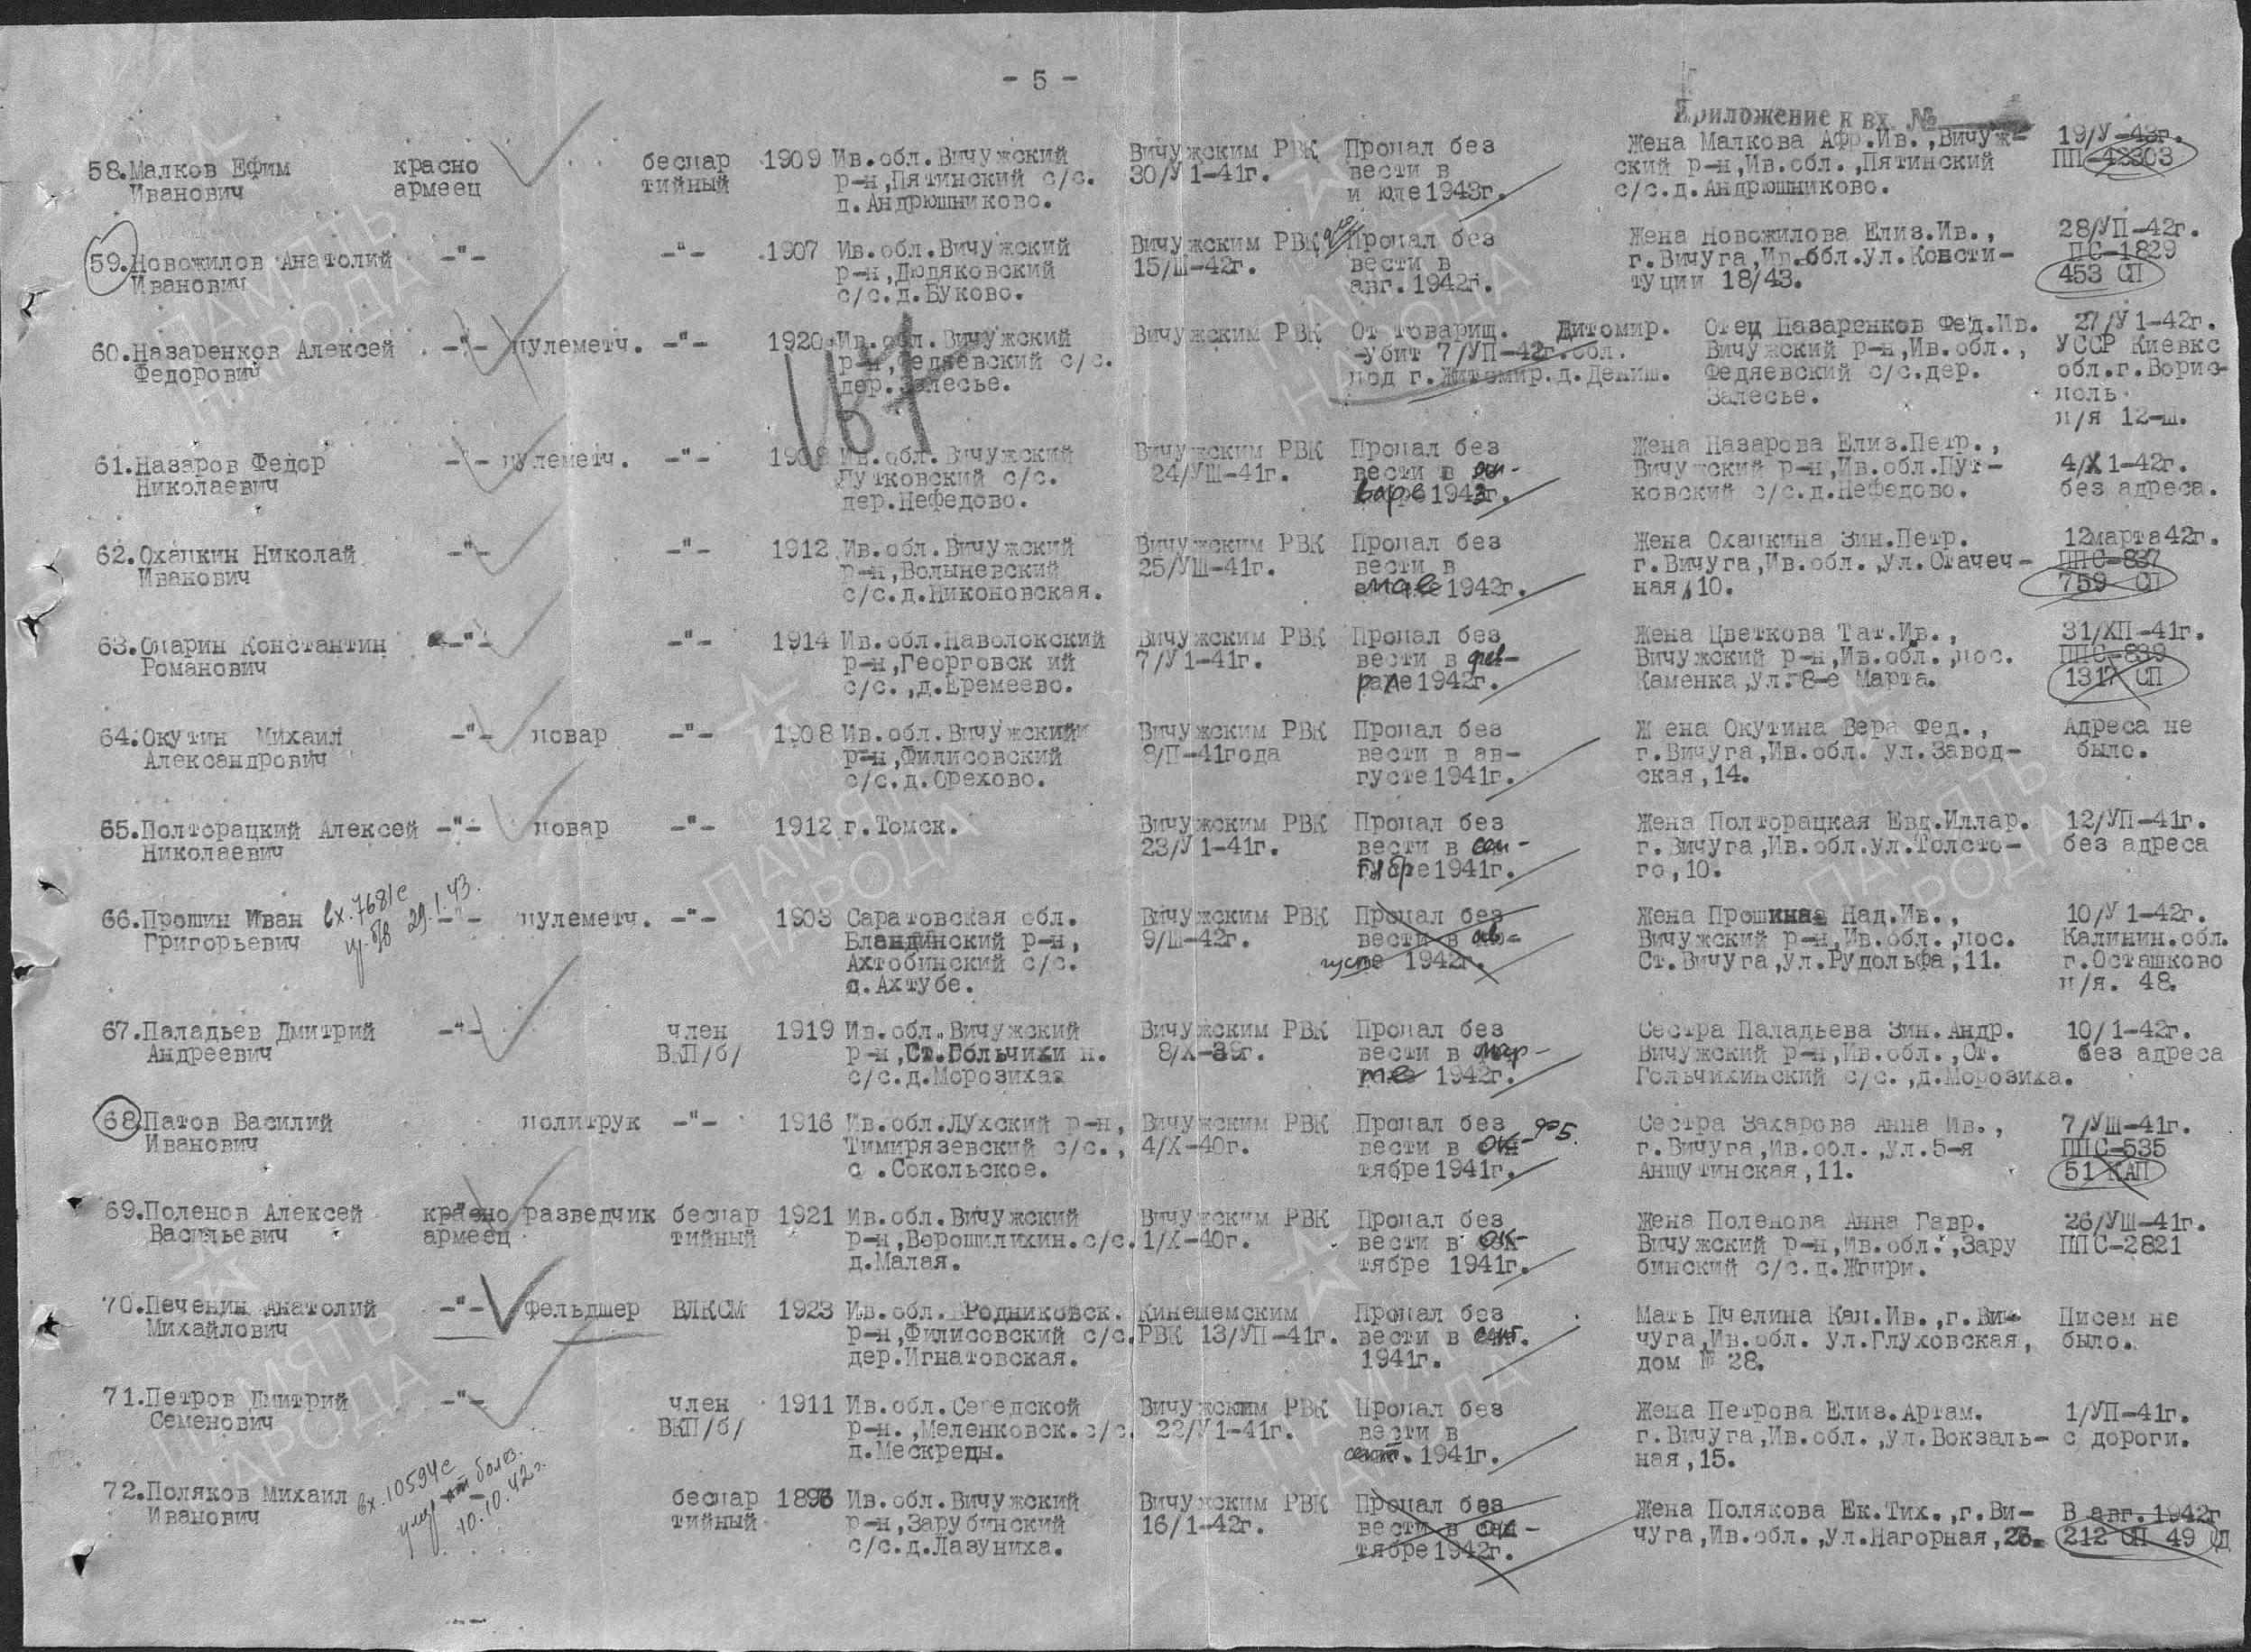 - 5 -
Приложение к вх. №
58.Малков Ефим
Иванович
красно
армеец
беспар
тийный
1909
Ив.обл.Вичужский
р-н,Пятинский с/с.
д.Андрюшниково.
Вичужским РВК
30/У1-41г.
Пропал без
вести в
и юле1943г.
Жена Малкова Афр.Ив.,Вичуж-
ский р-н,Ив.обл.,Пятинский
с/с.д.Андрюшниково.
19/У-43г.
ПП-48303
59.Новожилов Анатолий
Иванович
-"-
-"-
1907
Ив.обл.Вичужский
р-н,Дюдяковский
с/с.д.Буково.
Вичужским РВК
15/Ш-42г.
Пропал без
вести в
авг.1942г.
Жена Новожилова Елиз.Ив.,
г.Вичуга,Ив.обл.ул.Консти-
туции 18/43.
28/УП-42г.
ПС-1829
453 СП
60.Назаренков Алексей
Федорович
-"-
пулеметч.
-"-
1920
Ив.обл.Вичужский
р-н,Федяевский с/с.
дер.Залесье.
Вичужским РВК
От товарищ. Житомир.
-убит 7/УП-42г.обл.
под г.Житомир.д.Дениш.
Отец Назаренков Фед.Ив.
Вичужский р-н,Ив.обл.,
Федяевский с/с.дер.
Залесье.
27/У1-42г.
УССР Киевкс
обл.г.Борис-
поль
п/я 12-ш.
61.Назаров Федор
Николаевич
-"-
пулеметч.
-"-
1908
Ив.обл.Вичужский
Путковский с/с.
дер.Нефедово.
Вичужским РВК
24/УШ-41г.
Пропал без
вести в ян-
варе 1943г.
Жена Назарова Елиз.Петр.,
Вичужский р-н,Ив.обл.Пут-
ковский с/с.д.Нефедово.
4/Х1-42г.
без адреса.
62.Охапкин Николай
Иванович
-"-
-"-
1912
Ив.обл.Вичужский
р-н,Волыневский
с/с.д.Никоновская.
Вичужским РВК
25/УШ-41г.
Пропал без
вести в
мае 1942г.
Жена Охапкина Зин.Петр.
г.Вичуга,Ив.обл.,ул.Стачеч-
ная,10.
12марта42г.
ППС-837
759 СП
63.Опарин Константин
Романович
-"-
-"-
1914
Ив.обл.Наволокский
р-н,Георговск ий
с/с.,д.Еремеево.
Вичужским РВК
7/У1-41г.
Пропал без
вести в фев-
рале1942г.
Жена Цветкова Тат.Ив.,
Вичужский р-н,Ив.обл.,пос.
Каменка,ул.8-е Марта.
31/ХП-41г.
ППС-839
1317 СП
64.Окутин Михаил
Александрович
-"-
повар
-"-
1908
Ив.обл.Вичужский
р-н,Филисовский
с/с.д.Орехово.
Вичужским РВК
8/П-41года
Пропал без
вести в ав-
густе1941г.
Ж ена Окутина Вера Фед.,
г.Вичуга,Ив.обл. ул.Завод-
ская,14.
Адреса не
было.
65.Полторацкий Алексей
Николаевич
-"-
повар
-"-
1912
г.Томск.
Вичужским РВК
23/У1-41г.
Пропал без
вести в сен-
тябре1941г.
Жена Полторацкая Евд.Иллар.
г.Вичуга,Ив.обл.ул.Толсто-
го,10.
12/УП-41г.
без адреса
66.Прошин Иван
Григорьевич
вх.7681с
29.1.43.
-"-
пулеметч.
-"-
1903
Саратовская обл.
Бландинский р-н,
Ахтобинский с/с.
с.Ахтубе.
Вичужским РВК
9/Ш-42г.
Пропал без
вести в ав-
густе 1942г.
Жена Прошина Над.Ив.,
Вичужский р-н,Ив.обл.,пос.
Ст.Вичуга,ул.Рудольфа,11.
10/У1-42г.
Калинин.обл.
г.Осташково
п/я. 48.
67.Паладьев Дмитрий
Андреевич
-"-
член
ВКП/б/
1919
Ив.обл.Вичужский
р-н,Ст.Гольчихи н.
с/с.д.Морозиха.
Вичужским РВК
8/Х-39г.
Пропал без
вести в мар-
те 1942г.
Сестра Паладьева Зин.Андр.
Вичужский р-н,Ив.обл.,Ст.
Гольчихинский с/с.,д.Морозиха.
10/1-42г.
без адреса
68.Патов Василий
Иванович
политрук
-"-
1916
Ив.обл.Лухский р-н,
Тимирязевский с/с.,
с .Сокольское.
Вичужским РВК
4/Х-40г.
Пропал без
вести в ок-
тябре1941г.
Сестра Захарова Анна Ив.,
г.Вичуга,Ив.обл.,ул.5-я
Аншутинская,11.
7/УШ-41г.
ППС-535
51 КАП
69.Поленов Алексей
Васильевич
красно
армеец
разведчик
беспар
тийный
1921
Ив.обл.Вичужский
р-н,Ворошилихин.с/с.
д.Малая.
Вичужским РВК
1/Х-40г.
Пропал без
вести в ок-
тябре 1941г.
Жена Поленова Анна Гавр.
Вичужский р-н,Ив.обл.,Зару
бинский с/с.д.Жгири.
26/УШ-41г.
ППС-2821
70.Печенин Анатолий
Михайлович
-"-
Фельдшер
ВЛКСМ
1923
Ив.обл. Родниковск.
р-н,Филисовский с/с.
дер.Игнатовская.
Кинешемским
РВК 13/УП-41г.
Пропал без
вести в сент.
1941г.
Мать Пчелина Кап.Ив.,г.Ви-
чуга,Ив.обл. ул.Глуховская,
дом № 28.
Писем не
было.
71.Петров Дмитрий
Семенович
-"-
член
ВКП/б/
1911
Ив.обл.Середской
р-н.,Меленковск.с/с.
д.Мескреды.
Вичужским РВК
22/У1-41г.
Пропал без
вести в
сент. 1941г.
Жена Петрова Елиз.Артам.
г.Вичуга,Ив.обл.,ул.Вокзаль-
ная,15.
1/УП-41г.
с дороги.
72.Поляков Михаил
Иванович
вх.10594с
умер от болез.
10.10.42г.
-"-
беспар
тийный
1896
Ив.обл.Вичужский
р-н,Зарубинский
с/с.д.Лазуниха.
Вичужским РВК
16/1-42г.
Пропал без
вести в ок-
тябре1942г.
Жена Полякова Ек.Тих.,г.Ви-
чуга,Ив.обл.,ул.Нагорная,26.
В авг.1942г
212 СП 49 СД
ПАМЯТЬ
НАРОДА